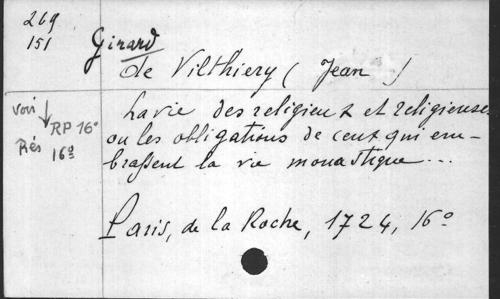 269
151
Girard
de Vilthiery (Jean)
voir ↓ RP 16°
Rés 16°
La vie des religieux et religieuses
ou les obligations de ceux qui em-
brassent la vie monastique...
Paris, de la Roche, 1724, 16°